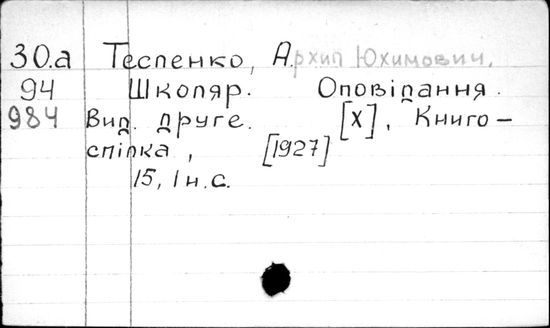 30.а Тесленко, Архип Юхимович.
94 Школяр. Оповідання.
984 Вид. друге. [Х], Книго-
спілка, [1927]
15, 1 н.с.